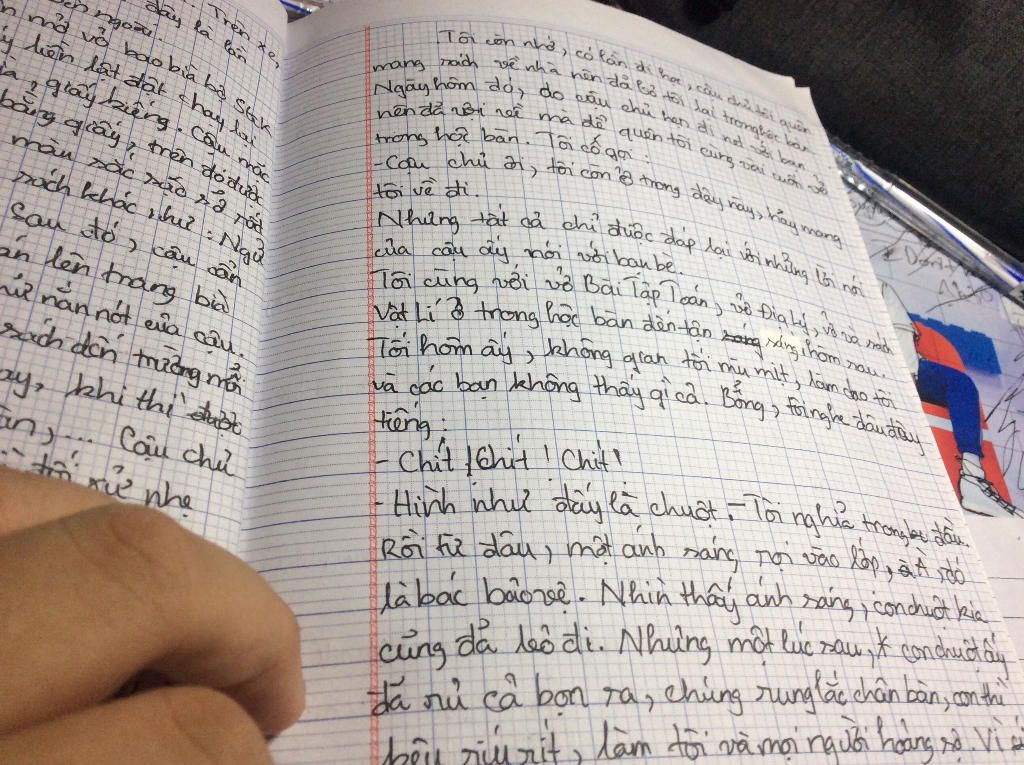 đây là lần
Trên xe,
ngoài
mở vở bao bìa bộ sách
liền lật đật chạy lại
giấy kiếng. Cậu mặc
bằng giấy, trên đó được
màu sắc sảo rõ rất
sách khác như: Ngữ
Sau đó, cậu cẩn
lên trang bìa
nắn nót của cậu.
sách đến trường mỗi
khi thì được
... Cậu chủ
tôi xử nhẹ
Tôi còn nhớ, có lần đi học, cậu chủ tôi quên
mang sách về nhà nên đã bỏ tôi lại trong hộc bàn.
Ngày hôm đó, do cậu chủ hẹn đi nơi với bạn
nên đã vội về mà để quên tôi cùng vài cuốn vở
trong hộc bàn. Tôi cố gọi:
- Cậu chủ ơi, tôi còn ở trong đây này, hãy mang
tôi về đi.
Nhưng tất cả chỉ được đáp lại với những lời nói
của cậu ấy nói với bạn bè.
Tôi cùng với vở Bài Tập Toán, vở Địa Lý, vở và sách
Vật Lí ở trong học bàn đến tận sáng sáng hôm sau.
Tối hôm ấy, không gian tối mù mịt, làm cho tôi
và các bạn không thấy gì cả. Bỗng, tôi nghe đâu đây
tiếng:
- Chít! Chít! Chít!
- Hình như đấy là chuột. - Tôi nghĩ trong đầu.
Rồi từ đâu, một ánh sáng rọi vào lớp, à À đó
là bác bảo vệ. Nhìn thấy ánh sáng, con chuột kia
cũng đã leo đi. Nhưng một lúc sau, con chuột ấy
đã rủ cả bọn ra, chúng rung lắc chân bàn, con thì
kêu ríu rít, làm tôi và mọi người hoảng sợ. Vì